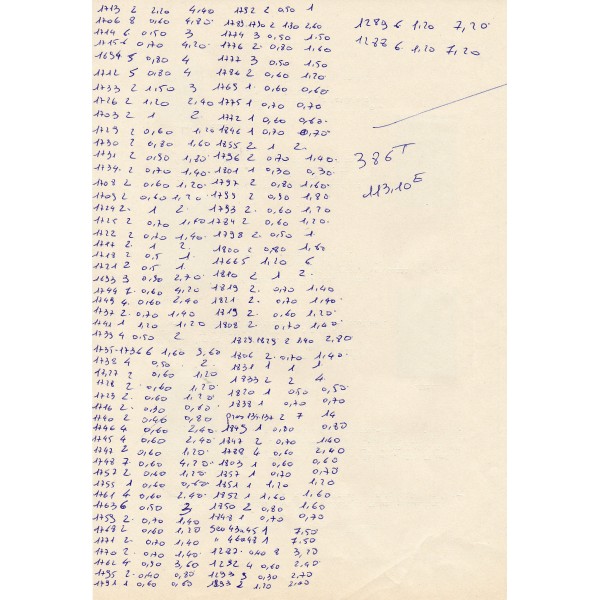 1713 2 2,20 4,40 1792 2 0,50 1
1706 8 0,60 4,80
1714 6 0,50 3 1774 3 0,50 1,50
1715 6 0,70 4,20 1776 2 0,80 1,60
1694 5 0,80 4 1777 3 0,50 1,50
1712 5 0,80 4 1786 2 0,60 1,20
1733 2 1,50 3 1769 1 0,60 0,60
1726 2 1,20 2,40 1775 1 0,70 0,70
1703 2 1 2 1772 1 0,60 0,60
1729 2 0,60 1,20 1846 1 0,70 0,70
1730 2 0,80 1,60 1855 2 1 2
1731 2 0,90 1,80 1796 2 0,70 1,40
1734 2 0,70 1,40 1801 1 0,30 0,30
1708 2 0,60 1,20 1797 2 0,80 1,60
1709 2 0,60 1,20 1799 2 0,90 1,80
1724 2 1 2 1793 2 0,60 1,20
1725 2 0,70 1,40 1784 2 0,60 1,20
1722 2 0,70 1,40 1798 2 0,50 1
1717 2 1 2
1718 2 0,5 1 1800 2 0,80 1,60
1721 2 0,5 1 1766 5 1,20 6
1693 3 0,90 2,70 1810 2 1 2
1744 7 0,60 4,20 1819 2 0,70 1,40
1749 4 0,60 2,40 1821 2 0,70 1,40
1737 2 0,70 1,40 1819 2 0,60 1,20
1741 1 1,20 1,20 1808 2 0,70 1,40
1739 4 0,50 2 1828 1829 2 1,40 2,80
1735-1736 6 1,60 9,60 1806 2 0,70 1,40
1738 4 0,50 2 1831 1 1
1727 2 0,60 1,20 1833 2 2 4
1728 2 0,60 1,20 1820 1 0,50 0,50
1723 2 0,60 1,20 1838 1 0,70 0,70
1740 2 0,40 0,80 2 7 14
1746 4 0,60 2,40 1849 1 0,80 0,80
1745 4 0,60 2,40 1847 2 0,70 1,40
1747 2 0,60 1,20 1788 4 0,60 2,40
1748 7 0,60 4,20 1803 1 0,60 0,60
1757 2 0,60 1,20 1857 1 0,70 0,70
1755 1 0,60 0,60 1851 1 1,20 1,20
1761 4 0,60 2,40 1852 1 1,60 1,60
1763 6 0,50 3 1850 2 0,80 1,60
1759 2 0,70 1,40 1848 1 0,70 0,70
1768 2 0,60 1,20 1 7,50
1771 2 0,70 1,40 1 7,50
1770 2 0,70 1,40 1287 0,40 8 3,20
1762 4 0,90 3,60 1292 4 0,60 2,40
1795 2 0,40 0,80 1293 3 0,90 2,70
1791 1 0,60 0,60 1853 2 1,20 2,40
1289 6 1,20 7,20
1288 6 1,20 7,20
386 T
113,10 E